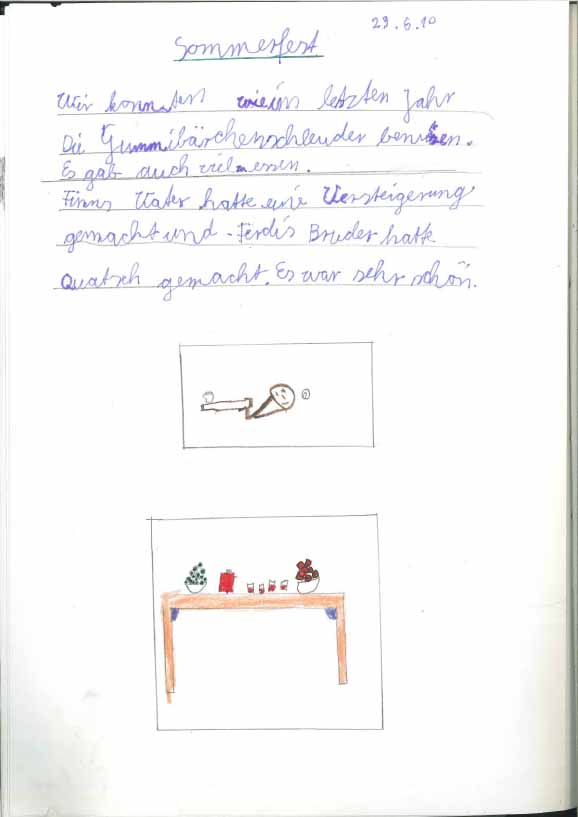 29.6.10
Sommerfest
Wir konnten wieim letzten Jahr
Die Gummibärchenschleuder benuzen.
Es gab auch vielmessen.
Finns Vater hatte eine Versteigerung
gemacht und Ferdis Bruder hatte
Quatsch gemacht. Es war sehr schön.